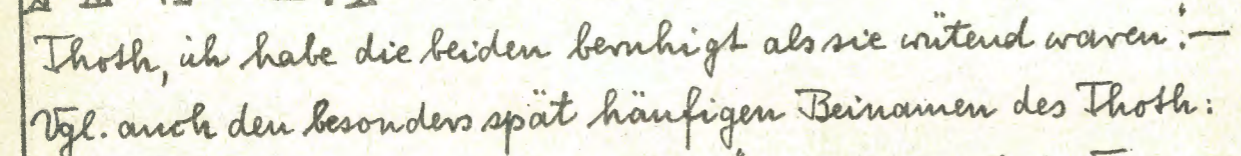 Thoth, ich habe die beiden beruhigt als sie wütend waren'.—
Vgl. auch den besonders spät häufigen Beinamen des Thoth: